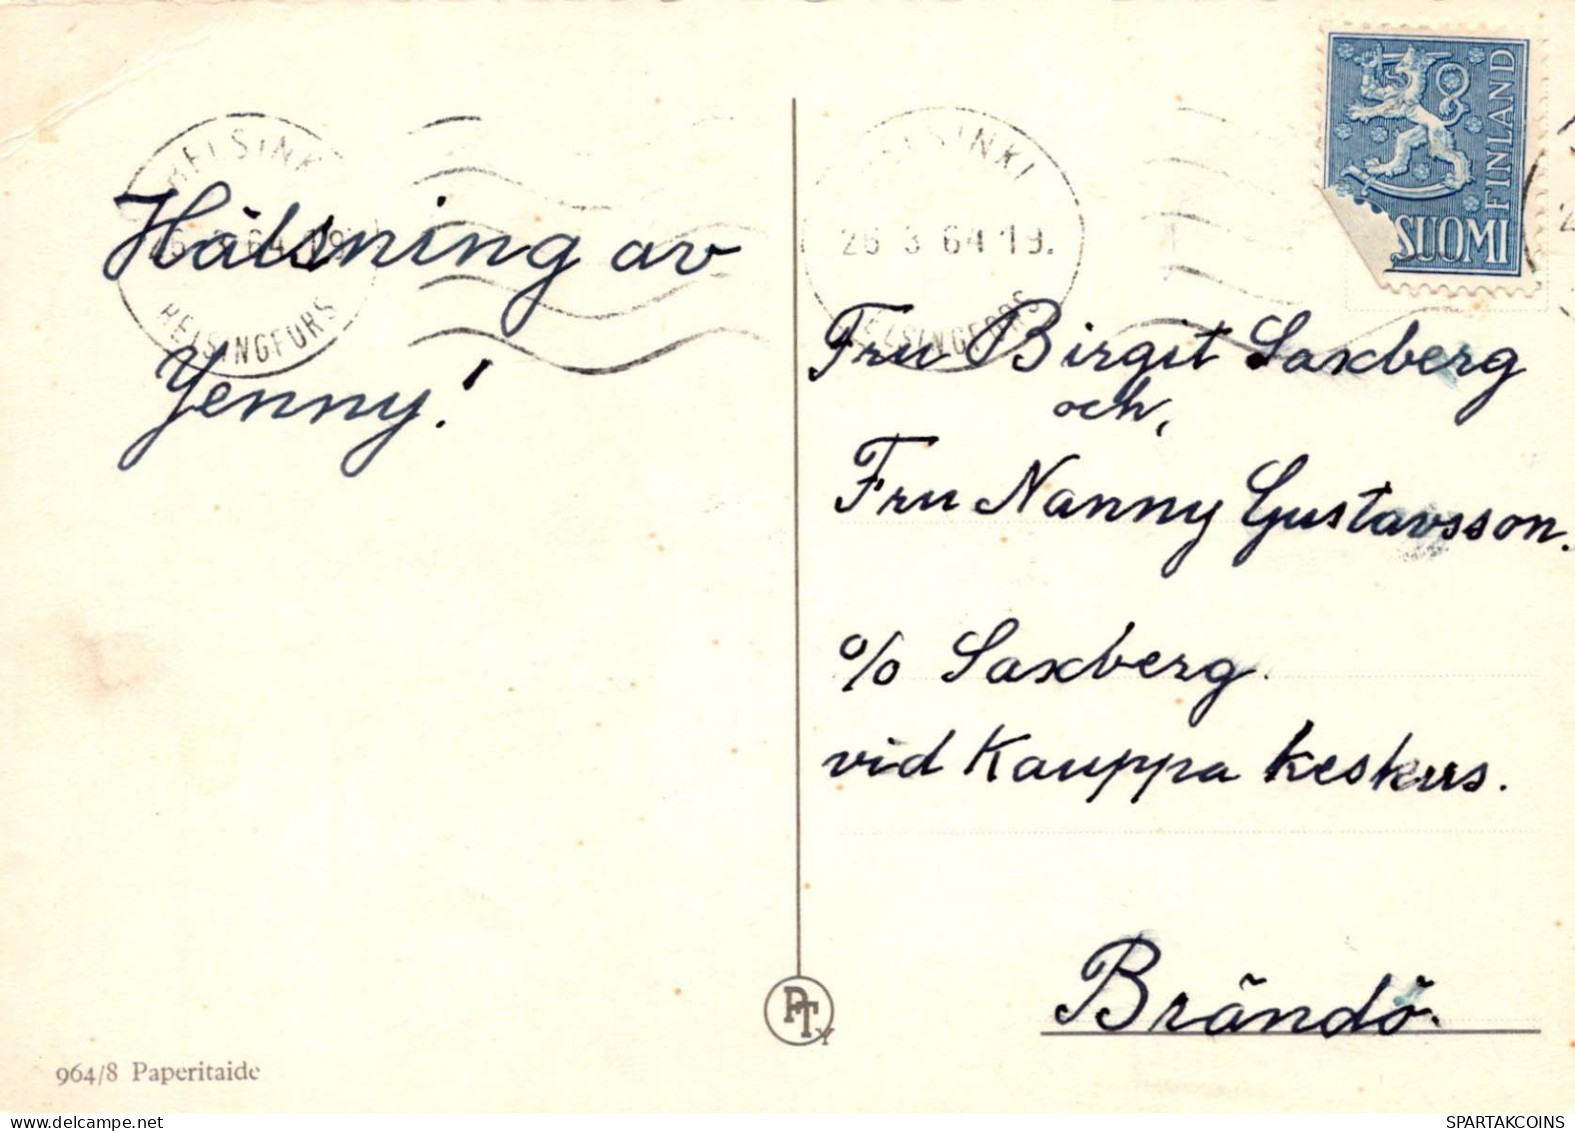 HELSINKI
26 3 64 19.
HELSINGFORS
Hälsning av
Jenny!
964/8 Paperitaide
PTy
HELSINKI
26 3 64 19.
HELSINGFORS
FINLAND
SUOMI
Fru Birgit Saxberg
och,
Fru Nanny Gustavsson.
c/o Saxberg.
vid Kauppa keskus.
Brändö.
SPARTAKCOINS